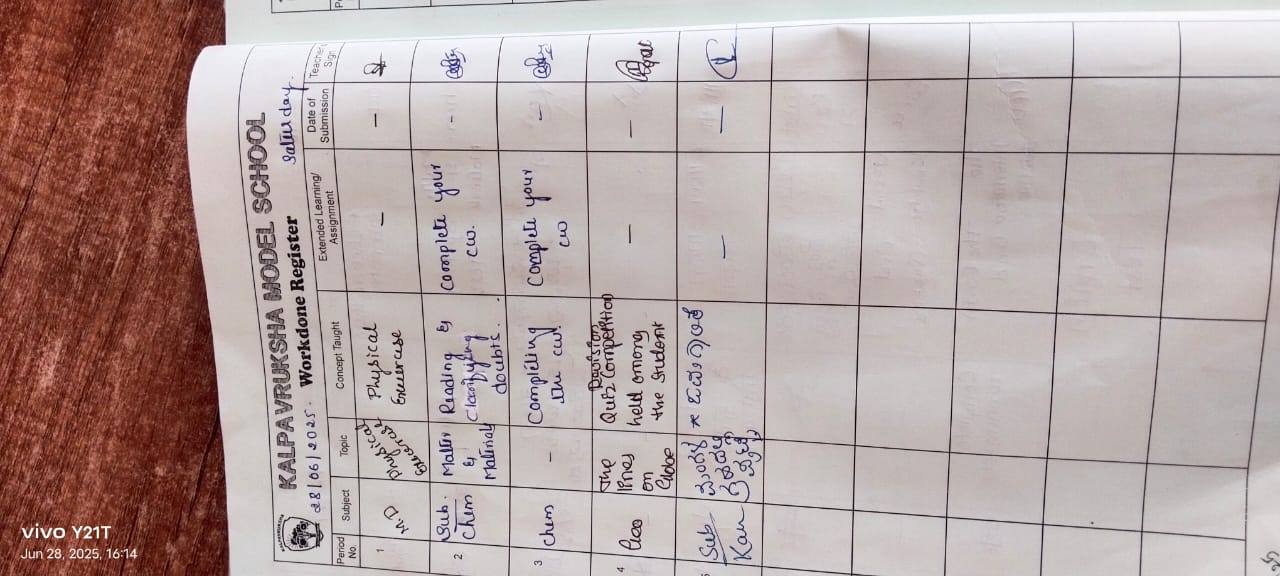 KALPAVRUKSHA MODEL SCHOOL
28/06/2025. Workdone Register Saturday.
Period No. Subject Topic Concept Taught Extended Learning/ Assignment Date of Submission Teacher's Sign
1 M.D Physical Exercise Physical Exercise — —
2 Sub. Chem Matter & Materials Reading & Clarifying doubts. Complete your CW. -
3 Chem - Completing the CW. Complete your CW -
4 Geo The lines on Globe Revision Quiz Competition held among the student — —
5 Sub Kan * — —
vivo Y21T
Jun 28, 2025, 16:14